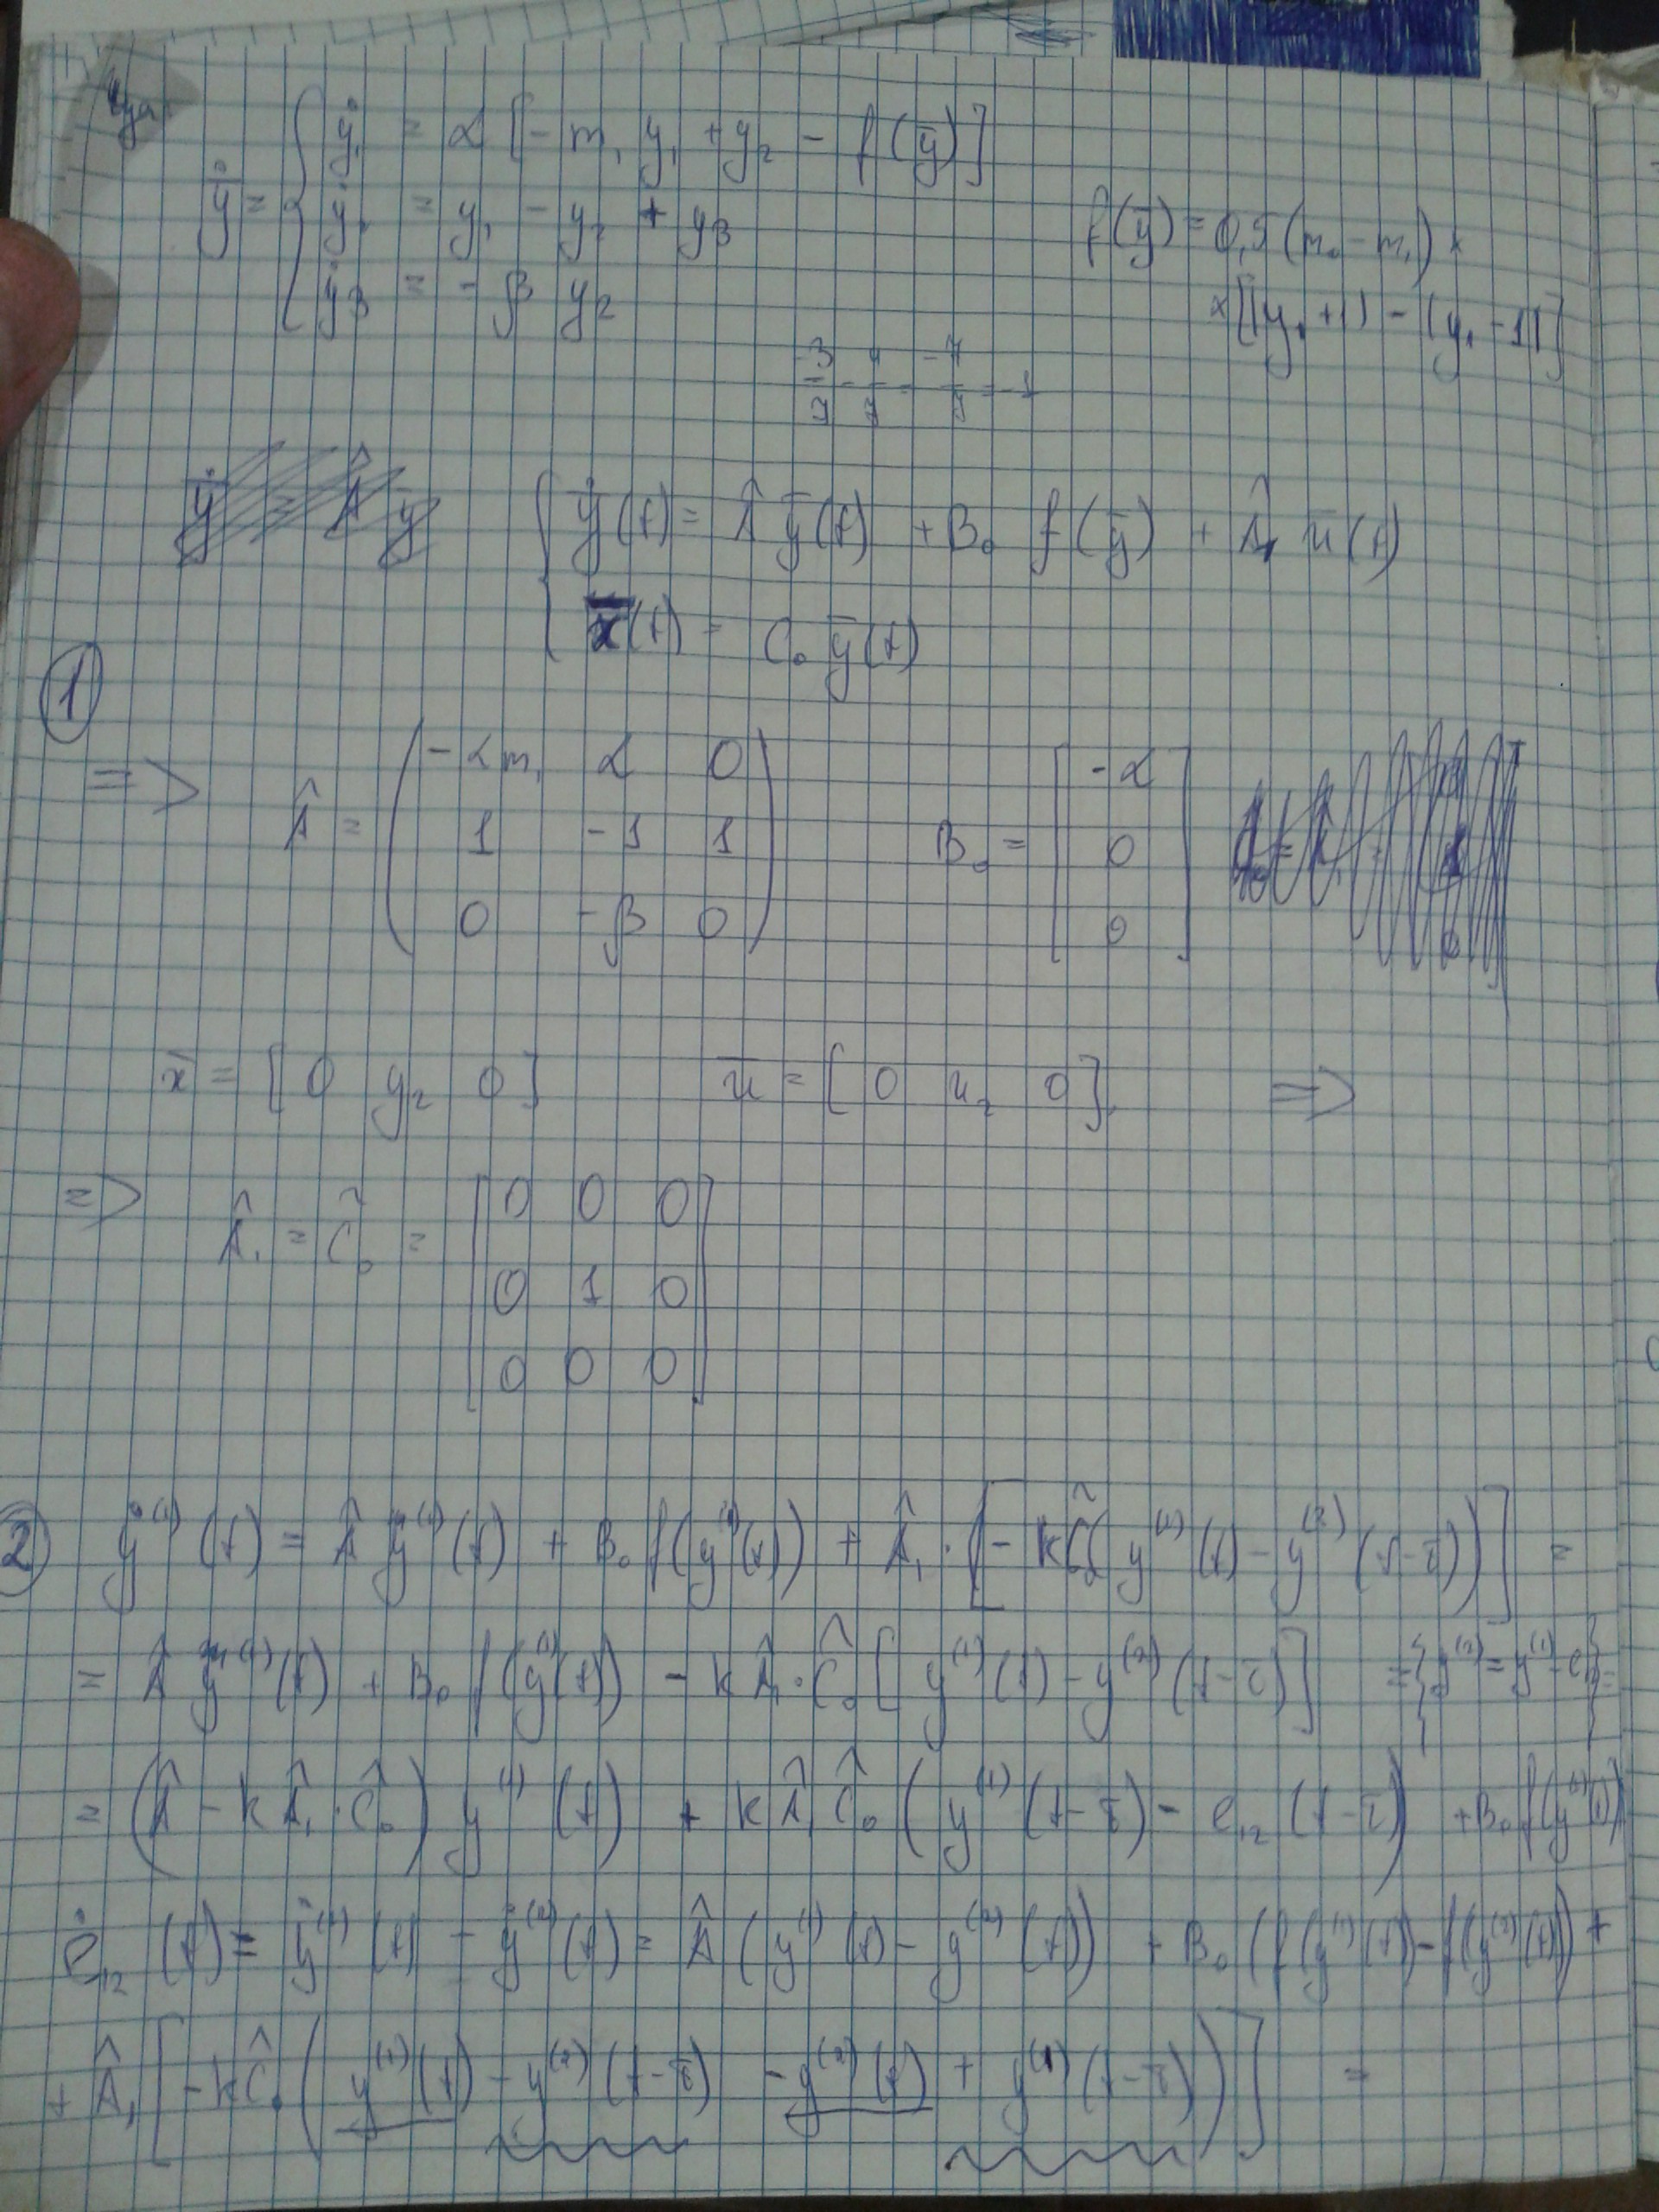 ẏ̄ = { ẏ₁ = α [- m₁ y₁ + y₂ - f(ȳ)]
ẏ₂ = y₁ - y₂ + y₃
ẏ₃ = - β y₂
f(ȳ) = 0,5 (m₀ - m₁) ×
× [|y₁ + 1| - |y₁ - 1|]
-3/7 - 4/7 = -7/7 = -1
ẏ̄ = Â ȳ
{ ẏ̄(t) = Â ȳ(t) + B₀ f(ȳ) + Â₁ ū(t)
x̄(t) = C₀ ȳ(t)
①
=> Â = ( -αm₁ α 0
1 -1 1
0 -β 0 )
B₀ = [ -α
0
0 ]
x̄ = [ 0 y₂ 0 ] ū = [ 0 u₂ 0 ] =>
=> Â₁ = Ĉ₀ = [ 0 0 0
0 1 0
0 0 0 ]
② ẏ⁽¹⁾(t) = Â ȳ⁽¹⁾(t) + B₀ f(y⁽¹⁾(t)) + Â₁ · [- kĈ₀( y⁽¹⁾(t) - y⁽²⁾(t-τ))] =
= Â ȳ⁽¹⁾(t) + B₀ f(y⁽¹⁾(t)) - k Â₁ · Ĉ₀ [ y⁽¹⁾(t) - y⁽²⁾(t-τ)] = { y⁽²⁾ = y⁽¹⁾ - e₁₂ } =
= (Â - k Â₁ · Ĉ₀) y⁽¹⁾(t) + k Â₁ Ĉ₀ ( y⁽¹⁾(t-τ) - e₁₂(t-τ)) + B₀ f(y⁽¹⁾(t))
ė₁₂(t) = ẏ⁽¹⁾(t) - ẏ⁽²⁾(t) = Â (y⁽¹⁾(t) - y⁽²⁾(t)) + B₀ (f(y⁽¹⁾(t)) - f(y⁽²⁾(t))) +
+ Â₁ [ - kĈ₀ ( y⁽¹⁾(t) - y⁽²⁾(t-τ) - y⁽²⁾(t) + y⁽¹⁾(t-τ))] =